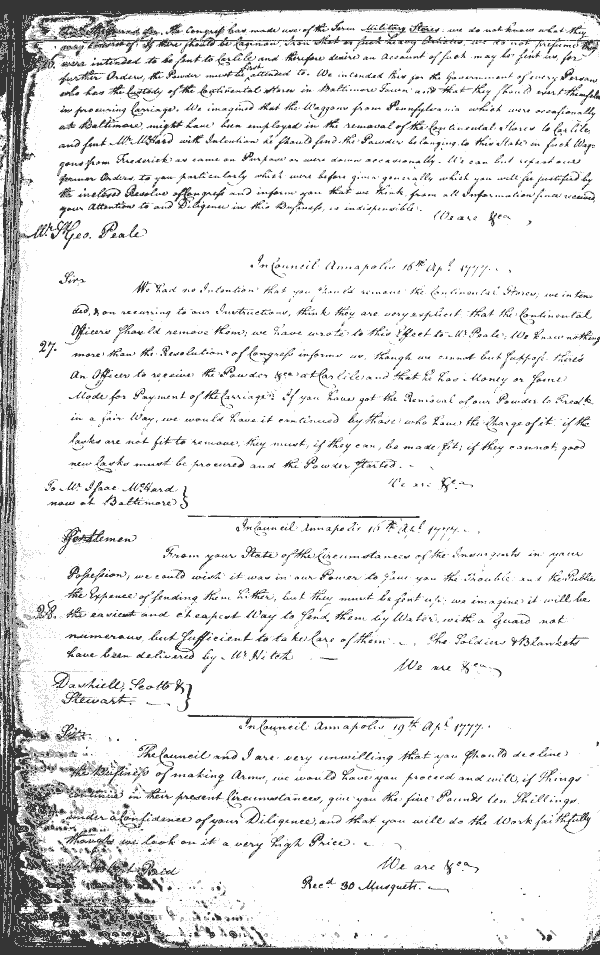 the Congress has made use of the Term Military Stores. we do not know what they
very consist of; If there should be Cannon, Iron Shot or such heavy Articles, we do not presume they
were intended to be sent to Carlile and therefore desire an Account of such may be sent us, for
further Orders, the Powder must be first attended to. We intended this for the Government of every Person
who has the Custody of the Continental Stores in Baltimore Town and that they should exert themselves
in procuring Carriage. We imagined that the Waggons from Pennsylvania which were occasionally
at Baltimore, might have been employed in the removal of the Continental Stores to Carlile,
and sent Mr. McHard with Intention he should send the Powder belonging to this State in such Wag-
gons from Frederick as came on Purpose or were down occasionally. We can but repeat our
former Orders, to you particularly which were before given generally which you will be justified by
the inclosed Resolve of Congress and inform you that we think from all Information since received,
your Attention to and Diligence in this Business, is indispensible.
We are &ca
Mr. St. Geo. Peale
In Council Annapolis 16th Apl. 1777.
Sir
We had no Intention that you should remove the Continental Stores, we inten-
ded, & on recurring to our Instructions, think they are very explicit that the Continental
Officers should remove them; we have wrote to this Effect to Mr. Peale. We know nothing
27. more than the Resolution of Congress informs us, though we cannot but suppose there's
An Officer to receive the Powder &ca at Carlile and that he has Money or some
Mode for Payment of the Carriage. If you have got the Removal of our Powder to Fredk.
in a fair Way, we would have it continued by those who have the Charge of it. if the
Casks are not fit to remove, they must, if they can, be made fit; if they cannot, good
new Casks must be procured and the Powder started.
We are &ca
To Mr. Isaac McHard
now at Baltimore
In Council Annapolis 16th Apl. 1777.
Gentlemen
From your State of the Circumstances of the Insurgents in your
Possession, we could wish it was in our Power to save you the Trouble and the Public
the Expence of sending them hither, but they must be sent up. we imagine it will be
28. the easiest and cheapest Way to send them by Water, with a Guard not
numerous, but sufficient to take Care of them. The Soldiers & Blankets
have been delivered by Mr. Hitch
We are &ca
Dashiell, Scott &
Stewart.
In Council Annapolis 19th Apl. 1777.
Sir
The Council and I are very unwilling that you should decline
the Business of making Arms, we would have you proceed and will, if things
in their present Circumstances, give you the five Pounds ten Shillings
under a Confidence of your Diligence, and that you will do the Work faithfully
though we look on it a very high Price.
We are &ca
Recd. 30 Musquets.